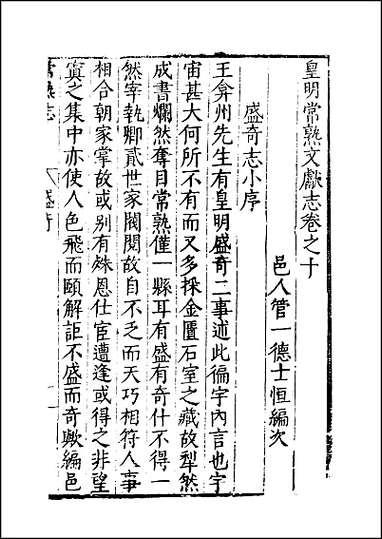 皇明常熟文獻志卷之十
邑人管一德士恒編次
盛奇志小序
王弇州先生有皇明盛奇二事述此徧宇內言也宇
宙甚大何所不有而又多採金匱石室之藏故犁然
成書爛然奪目常熟僅一縣耳有盛有奇什不得一
然宰執卿貳世家閥閱故自不乏而天巧相符人事
相合朝家掌故或别有殊恩仕宦遭逢或得之非望
寘之集中亦使人色飛而頤解詎不盛而奇歟編邑
常熟志
盛奇
一